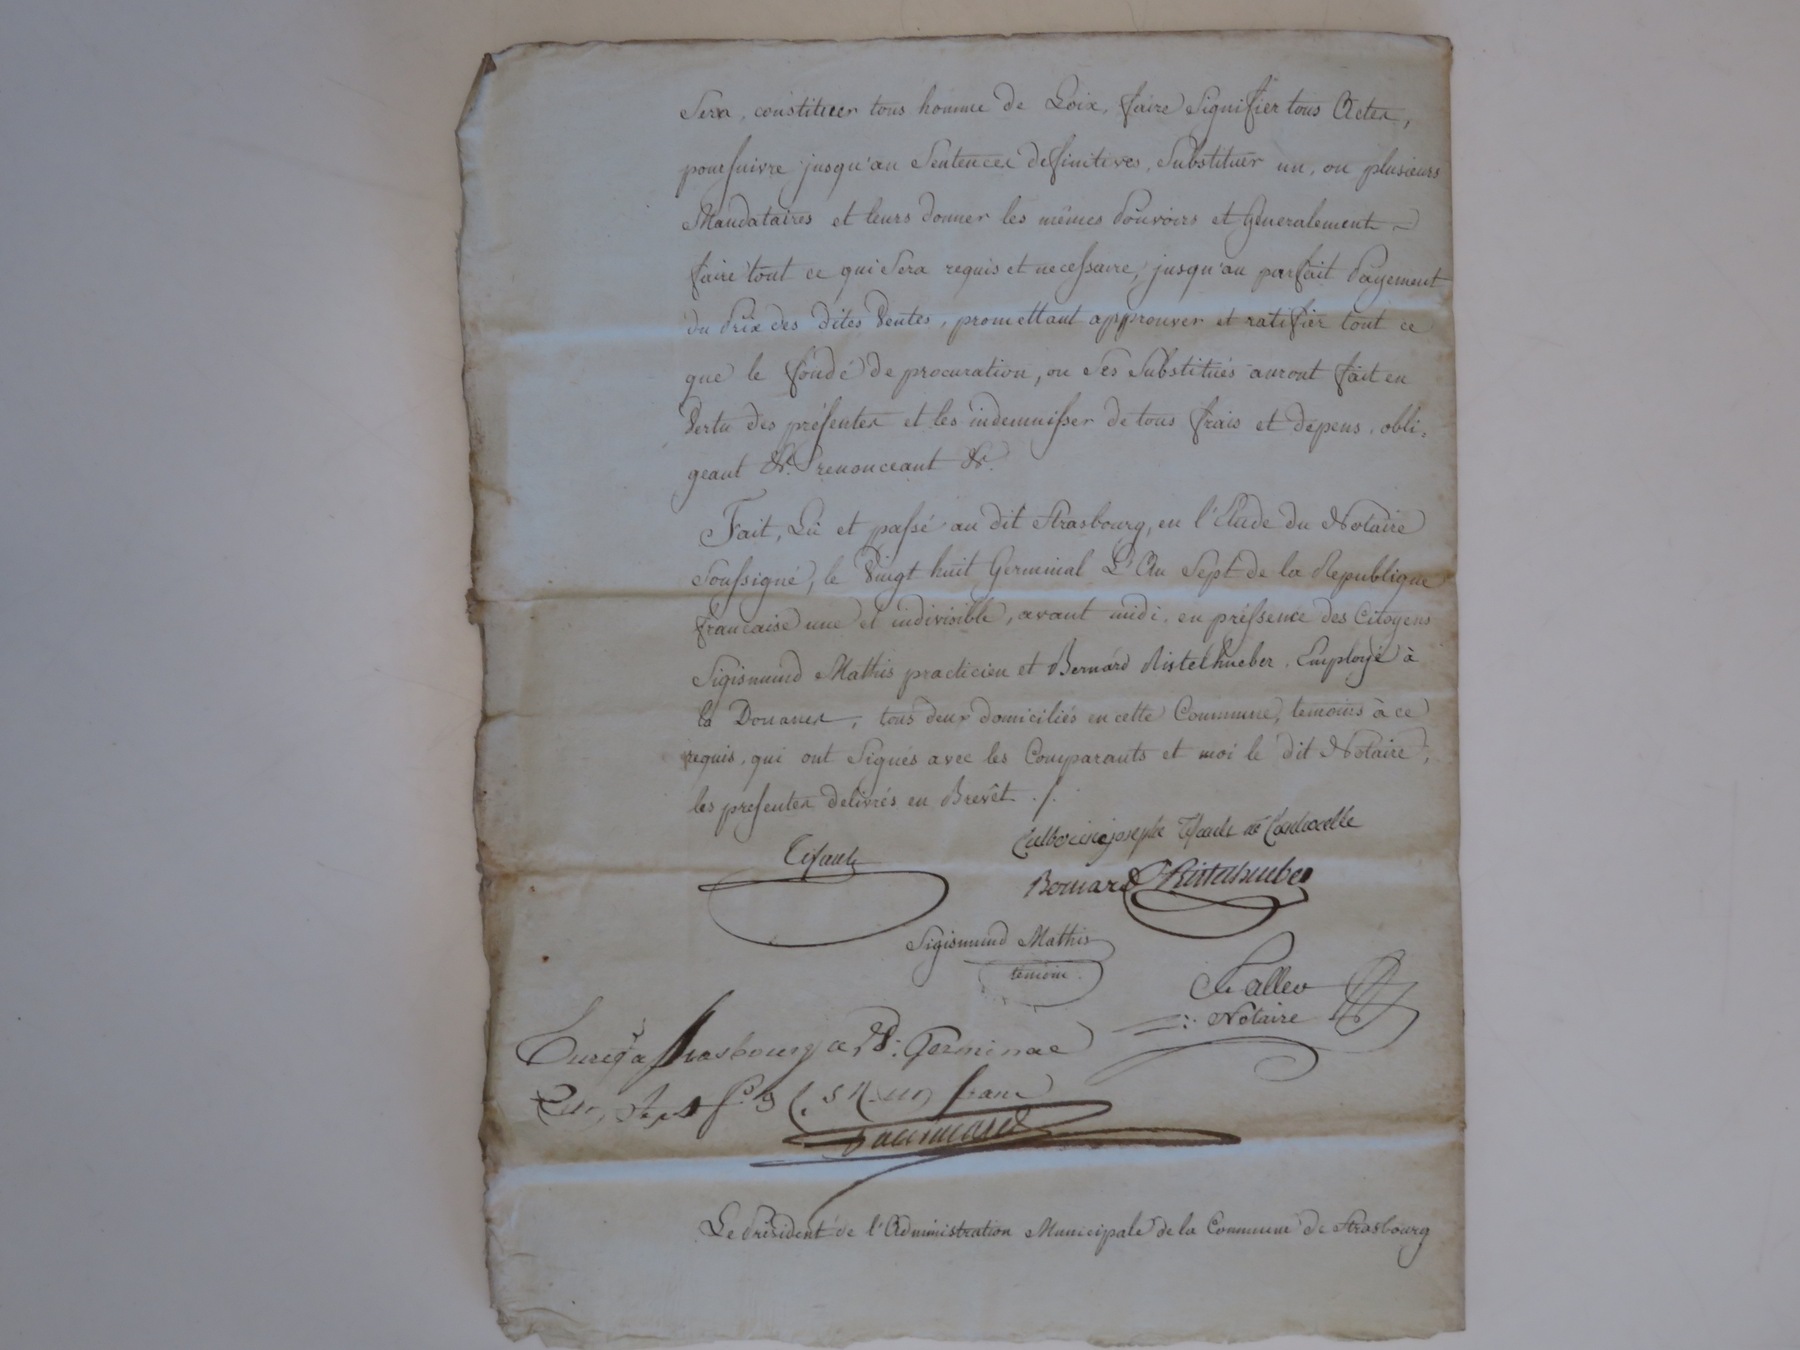 Sera, constituer tous homme de Loix, faire Signifier tous Actes,
poursuivre jusqu'au Sentences definitives, Substituer un, ou plusieurs
Mandataires et leurs donner les mêmes Pouvoirs et Generalement
faire tout ce qui Sera requis et necessaire, jusqu'au parfait Payement
du Prix des dites Ventes, promettant approuver et ratifier tout ce
que le fondé de procuration, ou Ses Substitués auront fait en
Vertu des présentes et les indemnisser de tous frais et dépens, obli=
geant &c. renonceant &c.
Fait, Lû et passé au dit Strasbourg, en l'Etude du Notaire
Soussigné, le Vingt huit Germinal L'An Sept de la Republique
française une et indivisible, avant midi, en préssence des Citoyens
Sigismund Mathis practicien et Bernárd Ristelhueber, Employé à
la Douanes, tous deux domiciliés en cette Commune, temoins à ce
requis, qui ont Signés avec les Comparants et moi le dit Notaire,
les presentes delivrés en Brevêt ./.
josephe née
Bernard Ristelhueber
Sigismund Mathis
témoin
Notaire
a Strasbourg 28. Germinal
un franc
Le Président de l'Administration Municipale de la Commune de Strasbourg